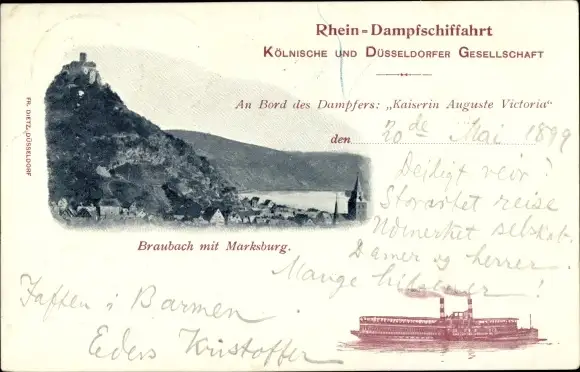 Rhein=Dampfschiffahrt
Kölnische und Düsseldorfer Gesellschaft
An Bord des Dampfers: „Kaiserin Auguste Victoria“
den 20de Mai 1899
FR. DIETZ, DÜSSELDORF
Deiligt veir!
Storartet reise
Udmerket selskab.
Damer og herrer.
Braubach mit Marksburg.
Mange hilsener!
Iaften i Barmen
Eders Kristoffer